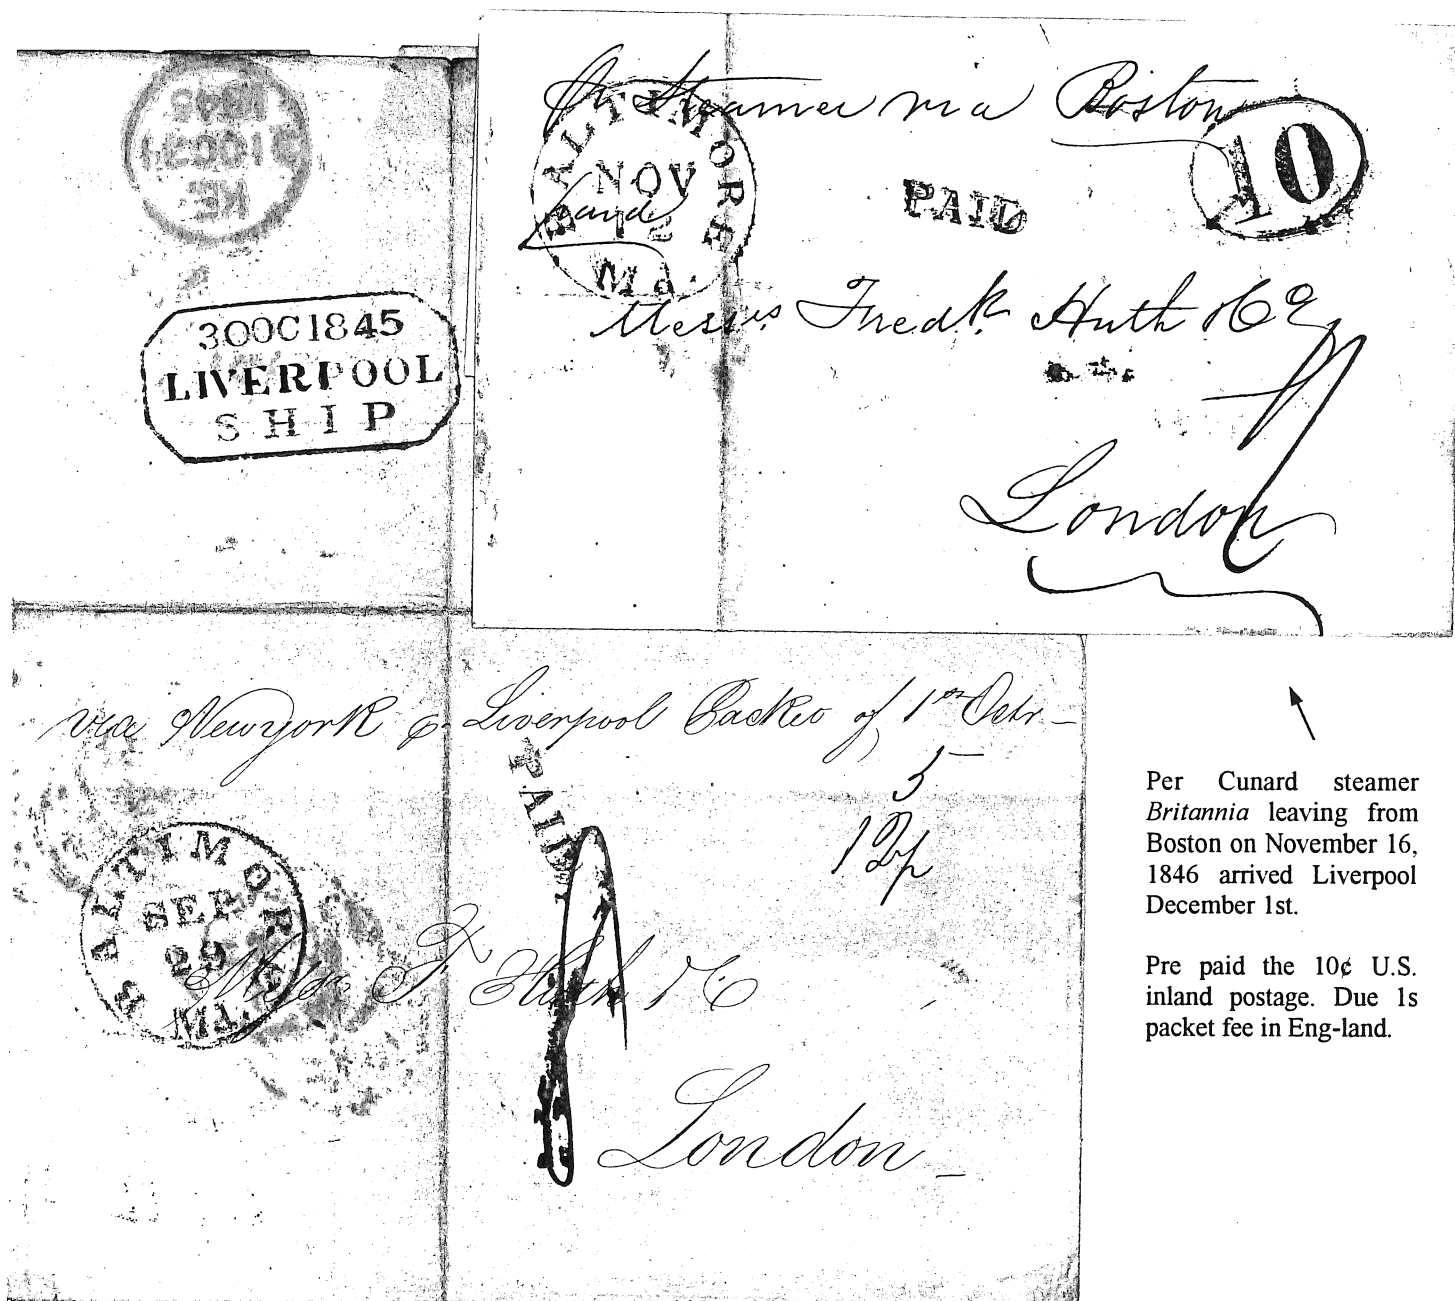 1845
31OC31
KE
30OC1845
LIVERPOOL
SHIP
Pr Steamer via Boston
BALTIMORE
NOV
12
Md.
PAID
10
Messrs Fredk Huth & Co
London
via New York & Liverpool Packet of 1st Octr
5
12½
PAID
BALTIMORE
SEP
29
Md.
Messrs F Huth & Co
London
Per Cunard steamer
Britannia leaving from
Boston on November 16,
1846 arrived Liverpool
December 1st.
Pre paid the 10¢ U.S.
inland postage. Due 1s
packet fee in Eng-land.